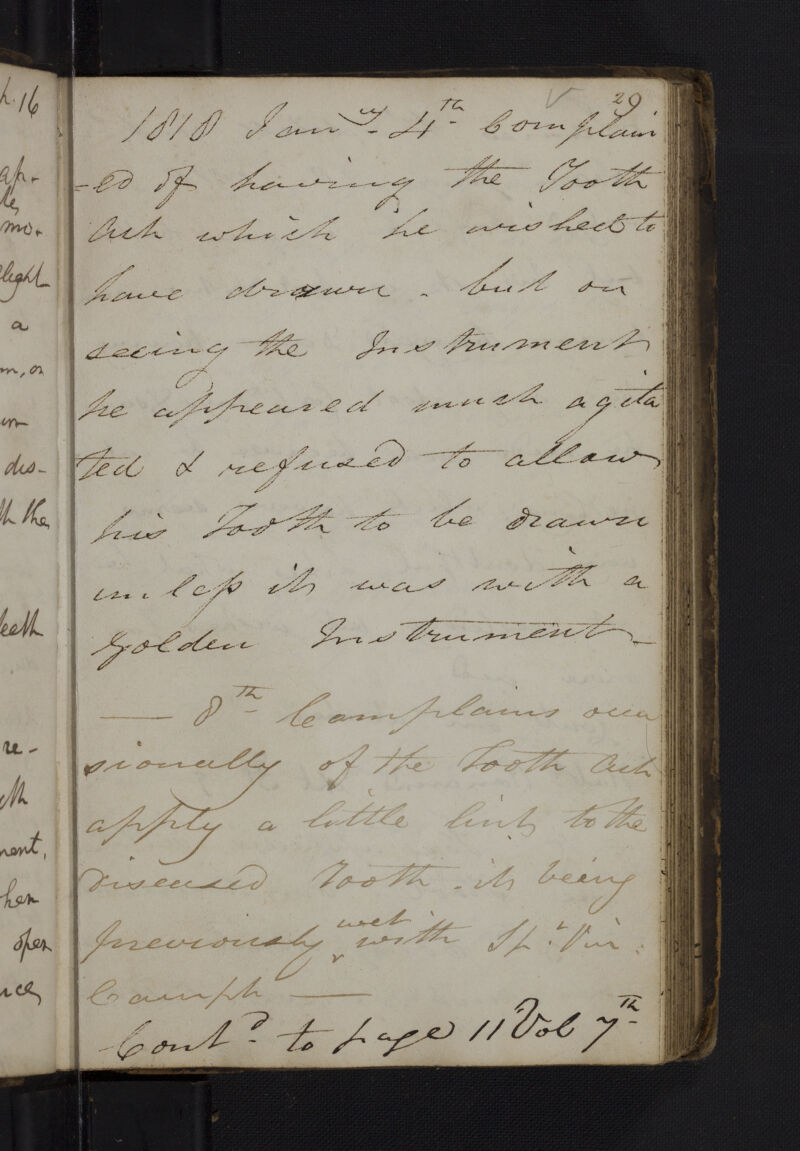 h. 16
ap-
les
mo-
light
a
m, or
un
dis-
th the
teeth
re-
th
ment,
hen
open
nces
29
1818 Jany. 4th Complain
-ed of having the Tooth
Ach which he wished to
have drawn - but on
seeing the Instrument
he appeared much agita
ted & refused to allow
his Tooth to be drawn
unless it was with a
golden Instrument -
— 8th Complains occa
sionally of the Tooth Ach
apply a little lint to the
diseased Tooth - it being
previously wet with Spt. Vin:
Camph —
Contd. to page 11 Vol 7th